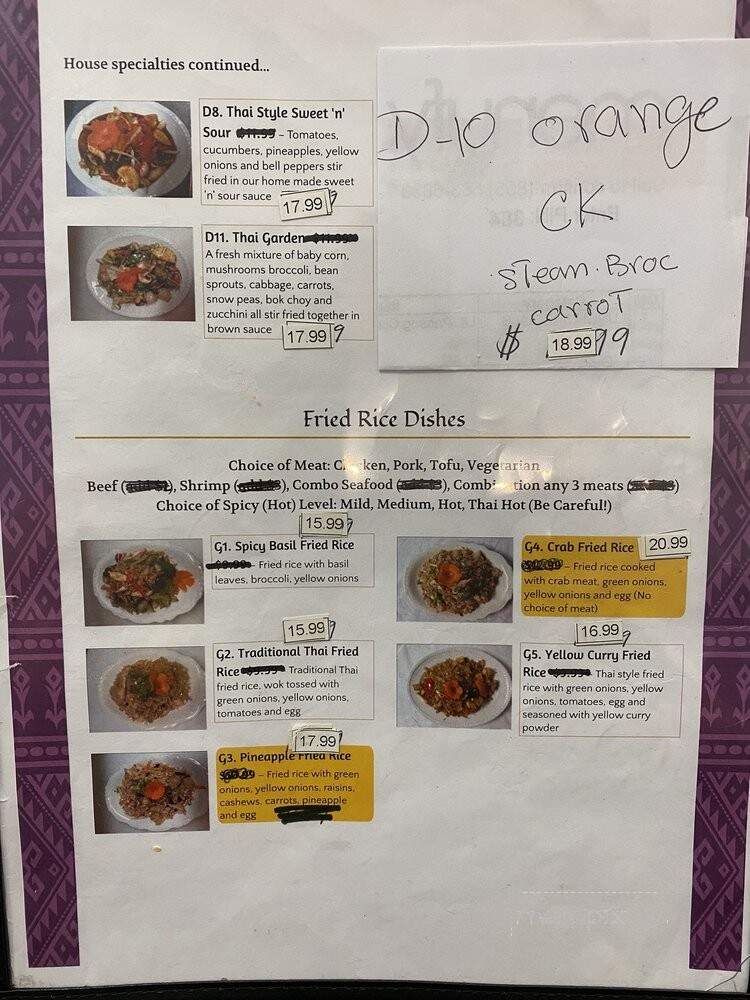 House specialties continued...
D8. Thai Style Sweet 'n'
Sour $11.99 – Tomatoes,
cucumbers, pineapples, yellow
onions and bell peppers stir
fried in our home made sweet
'n' sour sauce 17.99
D11. Thai Garden $11.99
A fresh mixture of baby corn,
mushrooms broccoli, bean
sprouts, cabbage, carrots,
snow peas, bok choy and
zucchini all stir fried together in
brown sauce 17.99
D-10 orange
CK
.steam.Broc
carrot
$ 18.99
Fried Rice Dishes
Choice of Meat: Chicken, Pork, Tofu, Vegetarian
Beef (add $2), Shrimp (add $3), Combo Seafood (add $3), Combination any 3 meats ()
Choice of Spicy (Hot) Level: Mild, Medium, Hot, Thai Hot (Be Careful!)
15.99
G1. Spicy Basil Fried Rice
$9.99 – Fried rice with basil
leaves, broccoli, yellow onions
15.99
G2. Traditional Thai Fried
Rice $9.99 Traditional Thai
fried rice, wok tossed with
green onions, yellow onions,
tomatoes and egg
17.99
G3. Pineapple Fried Rice
– Fried rice with green
onions, yellow onions, raisins,
cashews, carrots, pineapple
and egg
G4. Crab Fried Rice 20.99
– Fried rice cooked
with crab meat, green onions,
yellow onions and egg (No
choice of meat)
16.99
G5. Yellow Curry Fried
Rice $9.99 Thai style fried
rice with green onions, yellow
onions, tomatoes, egg and
seasoned with yellow curry
powder